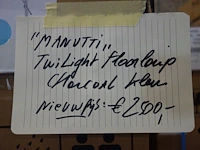 "MANUTTI"
TwiLight Floorlamp
Charcoal kleur
Nieuwprijs: € 2500,-